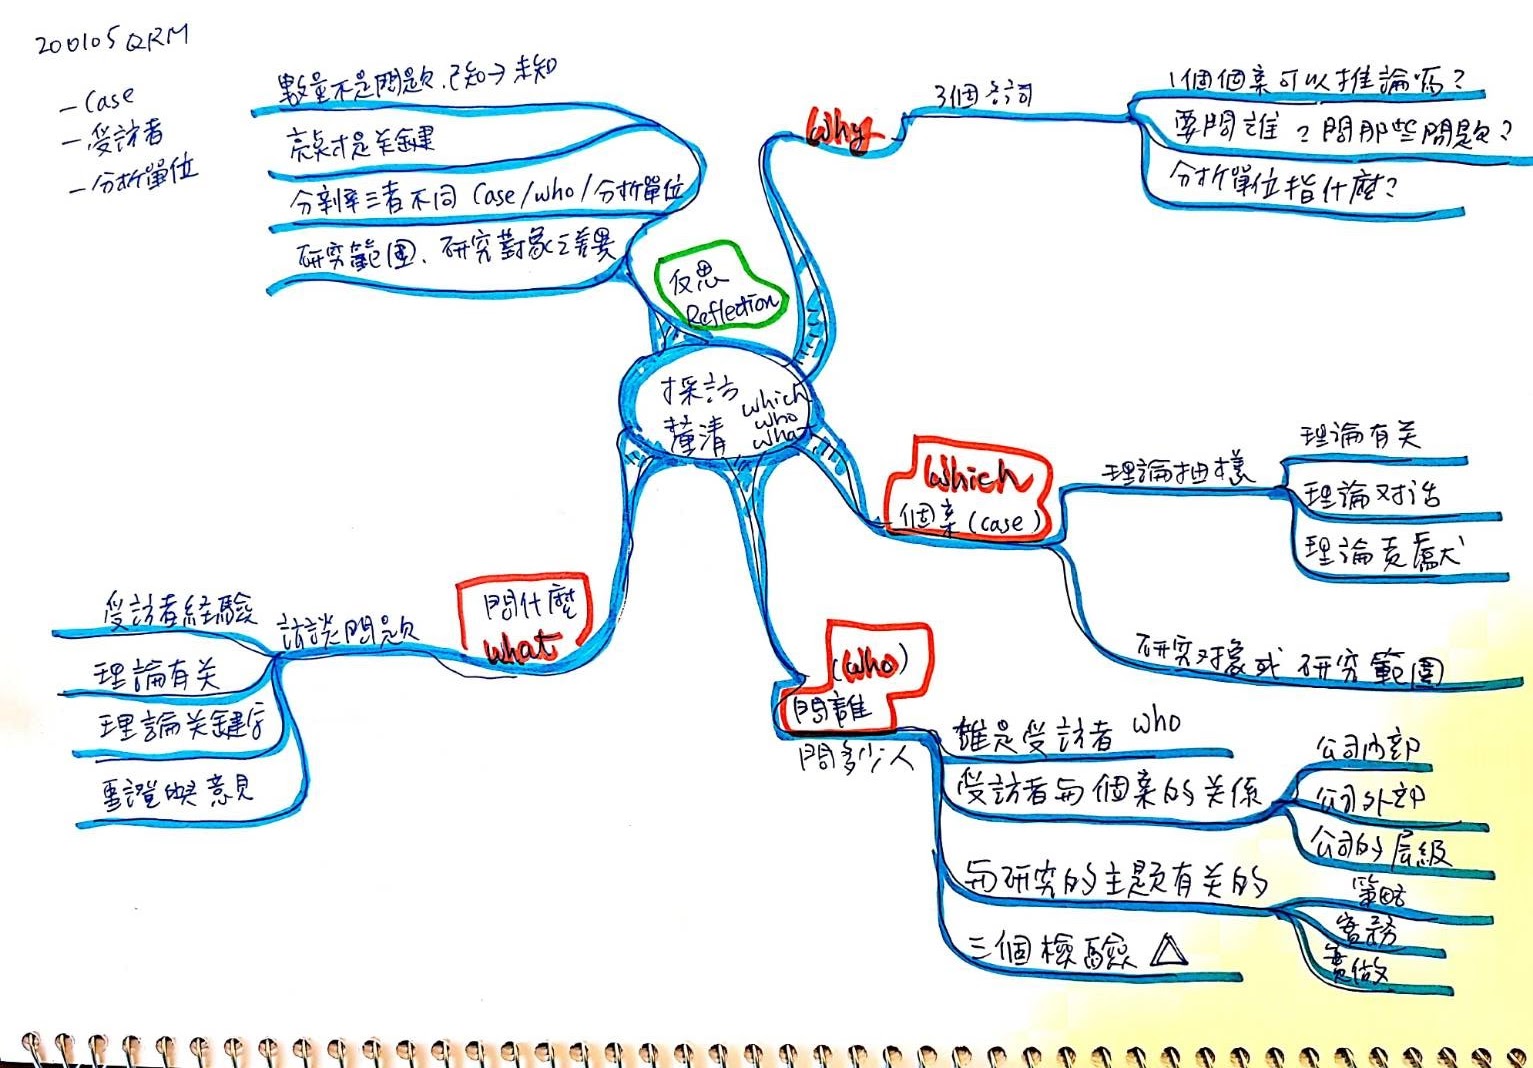 200105 QRM
- Case
- 受訪者
- 分析單位
數量不是問題.已知→未知
亮点才是关鍵
分剖率三者不同 Case/who/分析單位
研究範圍、研究對象之差異
反思
Reflection
why
3個名词
1個個案可以推論嗎？
要問誰？問那些問題？
分析單位指什麼？
採訪
釐清
which
who
what
which
個案(case)
理論抽樣
理論有关
理論对话
理論貢獻
研究对象或研究範圍
(who)
問誰
問多少人
誰是受訪者 who
受訪者与個案的关係
公司內部
公司外部
公司的层級
与研究的主題有关的
策略
實務
實做
三個檢驗 △
問什麼
what
訪談問題
受訪者経驗
理論有关
理論关鍵字
意見